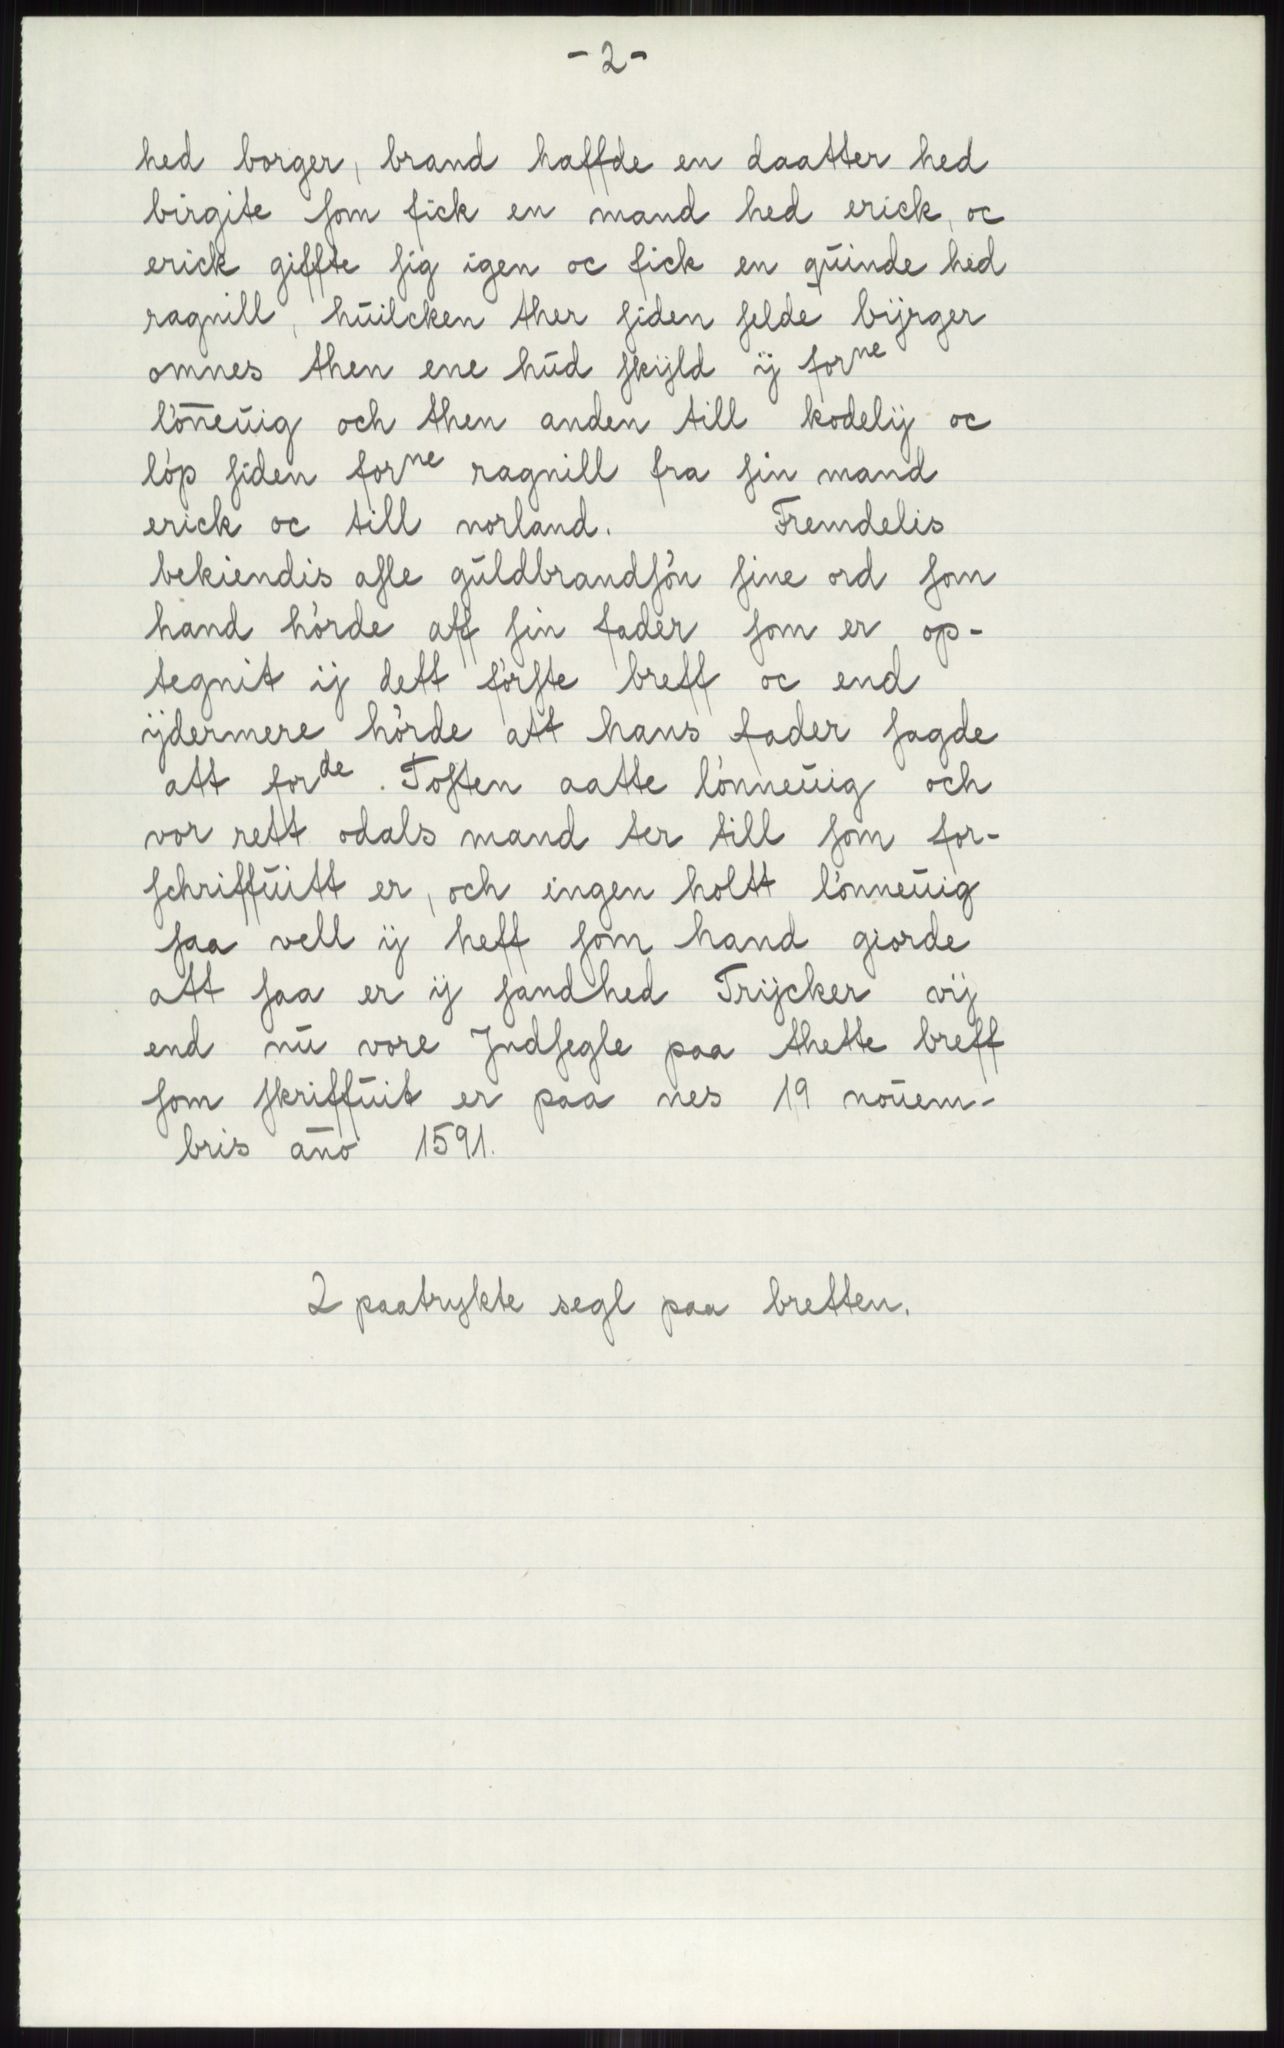 - 2 -
hed borger, brand haffde en daatter hed
birgite som fick en mand hed erick, oc
erick giffte sig igen oc fick en quinde hed
ragnill, huilcken ther siden selde bijrger
omnes then ene hud skijld ij forne
lönneuig och then anden till kodelij oc
löp siden forne ragnill fra sin mand
erick oc till norland. Fremdelis
bekiendis asle guldbrandsön sine ord som
hand hörde aff sin fader som er op-
tegnit ij dett förste breff oc end
ijdermere hörde att hans fader sagde
att forde. Tosten aatte lönneuig och
vor rett odals mand ter till som for-
schriffuitt er, och ingen holtt lönneuig
saa vell ij heff som hand giorde
att saa er ij sandhed Trijcker vij
end nu vore Indsegle paa thette breff
som skriffuit er paa nes 19 nouem-
bris año 1591.
2 paatrykte segl paa bretten.